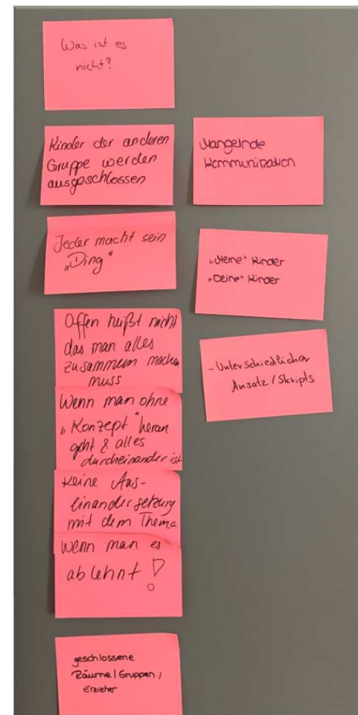 Was ist es
nicht?
Kinder der anderen
Gruppe werden
ausgeschlossen
Jeder macht sein
„Ding“
Offen heißt nicht
das man alles
zusammen machen
muss
Wenn man ohne
„Konzept“ heran
geht & alles
durcheinander ist
Keine Aus-
einandersetzung
mit dem Thema
Wenn man es
ablehnt!
geschlossene
Räume / Gruppen /
Erzieher
Mangelnde
Kommunikation
„Meine“ Kinder
„Deine“ Kinder
- Unterschiedlicher
Ansatz / Skripts